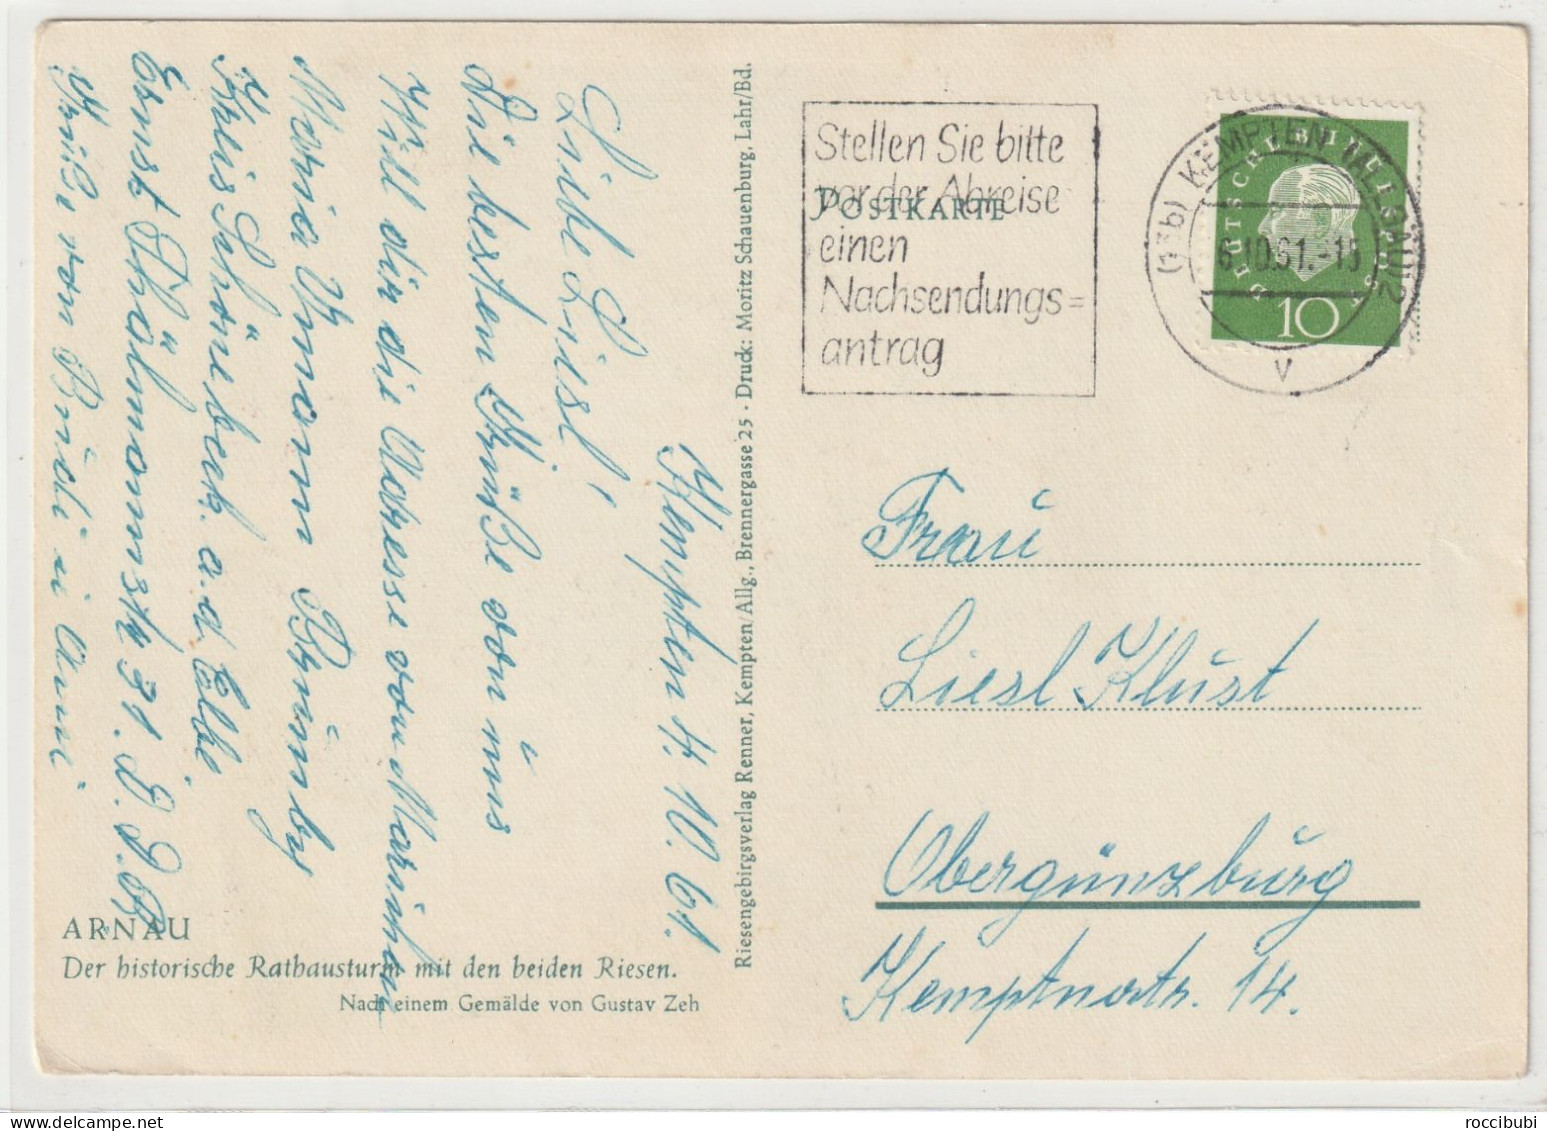 Kempten 4. 10. 61.
Liebe Liesl!
Die besten Grüße von uns
Will dir die Adresse von Mariechen
Maria
Kreis Schönebeck a. d. Elbe
Ernst Thälmannstr. 31. D.D.R
Grüße von Rudi u Anni
ARNAU
Der historische Rathausturm mit den beiden Riesen.
Nach einem Gemälde von Gustav Zeh
Riesengebirgsverlag Renner, Kempten/Allg., Brennergasse 25 · Druck: Moritz Schauenburg, Lahr/Bd.
POSTKARTE
Stellen Sie bitte
vor der Abreise
einen
Nachsendungs=
antrag
(13b) KEMPTEN (ALLGÄU) 2
6.10.61.-15
V
DEUTSCHE BUNDESPOST
10
Frau
Liesl Klust
Obergünzburg
Kemptnerstr. 14.
roccibubi